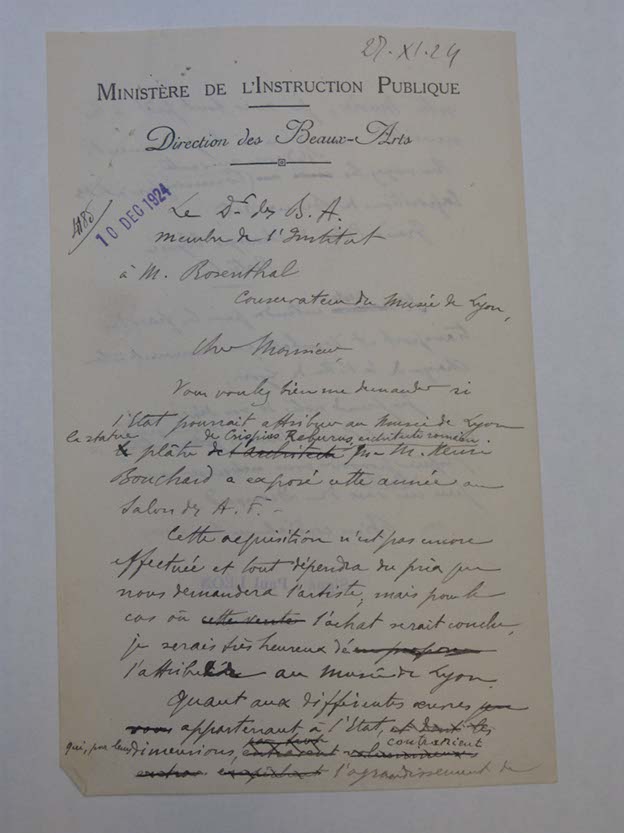 27-XI-24
MINISTÈRE DE L'INSTRUCTION PUBLIQUE
Direction des Beaux-Arts
10 DEC 1924
Le Dr des B. A.
membre de l'Institut
à M. Rosenthal
Conservateur du Musée de Lyon,
Cher Monsieur,
Vous voulez bien me demander si
l'Etat pourrait attribuer au Musée de Lyon
la statue de Crispius Reburus, architecte romain.
le plâtre de l'architecte que M. Henri
Bouchard a exposé cette année au
Salon des A. F. -
Cette acquisition n'est pas encore
effectuée et tout dépendra du prix que
nous demandera l'artiste; mais pour le
cas où cette vente l'achat serait conclu,
je serais très heureux de
l'attribuer au Musée de Lyon.
Quant aux différentes œuvres que
vous appartenant à l'Etat, et dont les
qui, par leurs dimensions, contrarient
l'agrandissement de